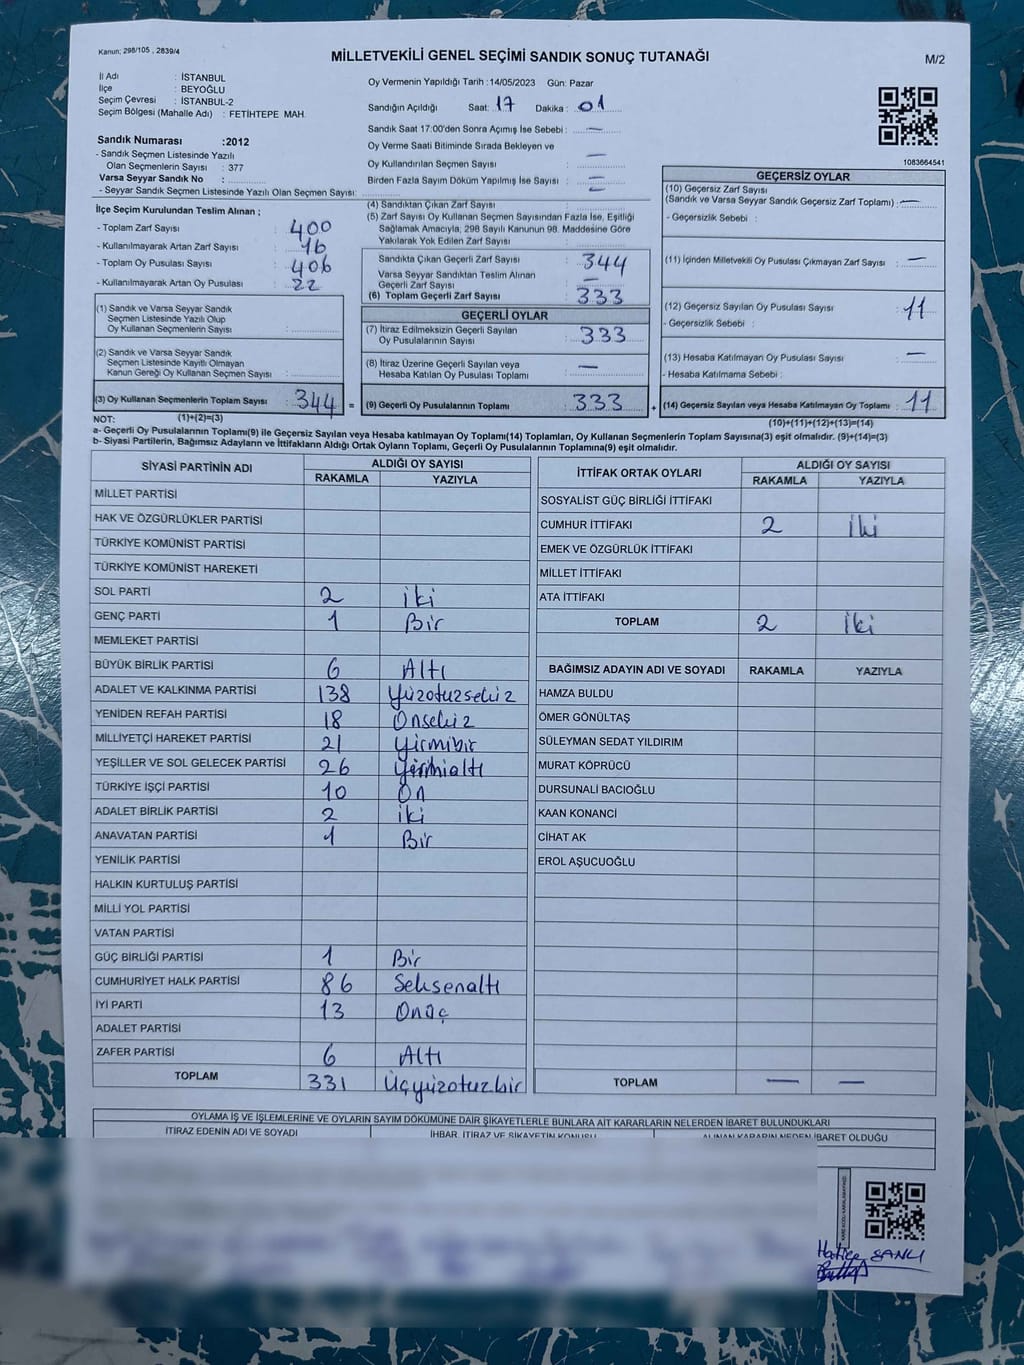 Kanun; 298/105 , 2839/4
MİLLETVEKİLİ GENEL SEÇİMİ SANDIK SONUÇ TUTANAĞI
M/2
İl Adı : İSTANBUL
İlçe : BEYOĞLU
Seçim Çevresi : İSTANBUL-2
Seçim Bölgesi (Mahalle Adı) : FETİHTEPE MAH.
Sandık Numarası :2012
- Sandık Seçmen Listesinde Yazılı
Olan Seçmenlerin Sayısı : 377
Varsa Seyyar Sandık No :
- Seyyar Sandık Seçmen Listesinde Yazılı Olan Seçmen Sayısı:
Oy Vermenin Yapıldığı Tarih :14/05/2023 Gün: Pazar
Sandığın Açıldığı Saat: 17 Dakika : 01
Sandık Saat 17:00'den Sonra Açımış İse Sebebi : —
Oy Verme Saati Bitiminde Sırada Bekleyen ve
Oy Kullandırılan Seçmen Sayısı : —
Birden Fazla Sayım Döküm Yapılmış İse Sayısı : —
1083664541
İlçe Seçim Kurulundan Teslim Alınan ;
- Toplam Zarf Sayısı : 400
- Kullanılmayarak Artan Zarf Sayısı : 16
- Toplam Oy Pusulası Sayısı : 406
- Kullanılmayarak Artan Oy Pusulası : 22
(1) Sandık ve Varsa Seyyar Sandık
Seçmen Listesinde Yazılı Olup
Oy Kullanan Seçmenlerin Sayısı :
(2) Sandık ve Varsa Seyyar Sandık
Seçmen Listesinde Kayıtlı Olmayan
Kanun Gereği Oy Kullanan Seçmen Sayısı :
(3) Oy Kullanan Seçmenlerin Toplam Sayısı : 344 =
(4) Sandıktan Çıkan Zarf Sayısı : —
(5) Zarf Sayısı Oy Kullanan Seçmen Sayısından Fazla İse, Eşitliği
Sağlamak Amacıyla, 298 Sayılı Kanunun 98. Maddesine Göre
Yakılarak Yok Edilen Zarf Sayısı :
Sandıkta Çıkan Geçerli Zarf Sayısı : 344
Varsa Seyyar Sandıktan Teslim Alınan
Geçerli Zarf Sayısı : —
(6) Toplam Geçerli Zarf Sayısı : 333
GEÇERLİ OYLAR
(7) İtiraz Edilmeksizin Geçerli Sayılan
Oy Pusulalarının Sayısı : 333
(8) İtiraz Üzerine Geçerli Sayılan veya
Hesaba Katılan Oy Pusulası Toplamı : —
(9) Geçerli Oy Pusulalarının Toplamı : 333 +
GEÇERSİZ OYLAR
(10) Geçersiz Zarf Sayısı
(Sandık ve Varsa Seyyar Sandık Geçersiz Zarf Toplamı) : —
- Geçersizlik Sebebi :
(11) İçinden Milletvekili Oy Pusulası Çıkmayan Zarf Sayısı : —
(12) Geçersiz Sayılan Oy Pusulası Sayısı : 11
- Geçersizlik Sebebi :
(13) Hesaba Katılmayan Oy Pusulası Sayısı : —
- Hesaba Katılmama Sebebi :
(14) Geçersiz Sayılan veya Hesaba Katılmayan Oy Toplamı : 11
NOT: (1)+(2)=(3)
(10)+(11)+(12)+(13)=(14)
a- Geçerli Oy Pusulalarının Toplamı(9) ile Geçersiz Sayılan veya Hesaba katılmayan Oy Toplamı(14) Toplamları, Oy Kullanan Seçmenlerin Toplam Sayısına(3) eşit olmalıdır. (9)+(14)=(3)
b- Siyasi Partilerin, Bağımsız Adayların ve İttifakların Aldığı Ortak Oyların Toplamı, Geçerli Oy Pusulalarının Toplamına(9) eşit olmalıdır.
SİYASİ PARTİNİN ADI ALDIĞI OY SAYISI
RAKAMLA YAZIYLA
MİLLET PARTİSİ
HAK VE ÖZGÜRLÜKLER PARTİSİ
TÜRKİYE KOMÜNİST PARTİSİ
TÜRKİYE KOMÜNİST HAREKETİ
SOL PARTİ 2 iki
GENÇ PARTİ 1 Bir
MEMLEKET PARTİSİ
BÜYÜK BİRLİK PARTİSİ 6 Altı
ADALET VE KALKINMA PARTİSİ 138 Yüzotuzsekiz
YENİDEN REFAH PARTİSİ 18 Onsekiz
MİLLİYETÇİ HAREKET PARTİSİ 21 Yirmibir
YEŞİLLER VE SOL GELECEK PARTİSİ 26 Yirmialtı
TÜRKİYE İŞÇİ PARTİSİ 10 On
ADALET BİRLİK PARTİSİ 2 iki
ANAVATAN PARTİSİ 1 Bir
YENİLİK PARTİSİ
HALKIN KURTULUŞ PARTİSİ
MİLLİ YOL PARTİSİ
VATAN PARTİSİ
GÜÇ BİRLİĞİ PARTİSİ 1 Bir
CUMHURİYET HALK PARTİSİ 86 Seksenaltı
İYİ PARTİ 13 Onüç
ADALET PARTİSİ
ZAFER PARTİSİ 6 Altı
TOPLAM 331 Üçyüzotuzbir
İTTİFAK ORTAK OYLARI ALDIĞI OY SAYISI
RAKAMLA YAZIYLA
SOSYALİST GÜÇ BİRLİĞİ İTTİFAKI
CUMHUR İTTİFAKI 2 iki
EMEK VE ÖZGÜRLÜK İTTİFAKI
MİLLET İTTİFAKI
ATA İTTİFAKI
TOPLAM 2 iki
BAĞIMSIZ ADAYIN ADI VE SOYADI RAKAMLA YAZIYLA
HAMZA BULDU
ÖMER GÖNÜLTAŞ
SÜLEYMAN SEDAT YILDIRIM
MURAT KÖPRÜCÜ
DURSUNALİ BACIOĞLU
KAAN KONANCİ
CİHAT AK
EROL AŞUCUOĞLU
TOPLAM — —
OYLAMA İŞ VE İŞLEMLERİNE VE OYLARIN SAYIM DÖKÜMÜNE DAİR ŞİKAYETLERLE BUNLARA AİT KARARLARIN NELERDEN İBARET BULUNDUKLARI
İTİRAZ EDENİN ADI VE SOYADI İHBAR, İTİRAZ VE ŞİKAYETİN KONUSU ALINAN KARARIN NEDEN İBARET OLDUĞU
Hatice ŞANLI